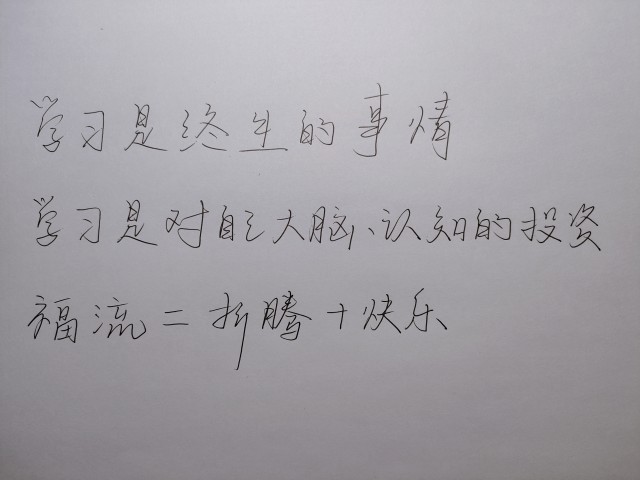 学习是终生的事情
学习是对自己大脑、认知的投资
福流=折腾+快乐